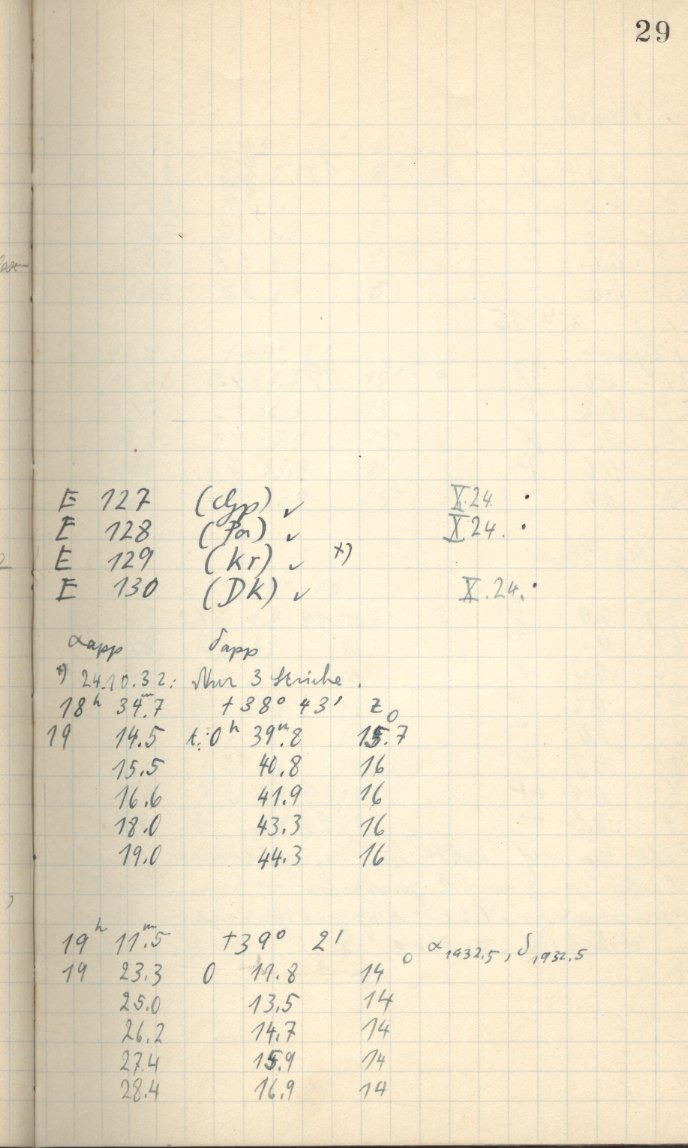 29
E 127 (Gp) ✓ X.24 .
E 128 (Pa) ✓ X 24. .
E 129 (Kr) ✓ *)
E 130 (DK) ✓ X.24. .
αapp δapp
*) 24.10.32: Nur 3 Striche.
18h 34m.7 +38° 43' z0
19 14.5 t:0h 39m.8 15.7
15.5 40.8 16
16.6 41.9 16
18.0 43.3 16
19.0 44.3 16
19h 11m.5 +39° 2' 0 α1932.5, δ1932.5
19 23.3 0 11.8 14
25.0 13.5 14
26.2 14.7 14
27.4 15.9 14
28.4 16.9 14